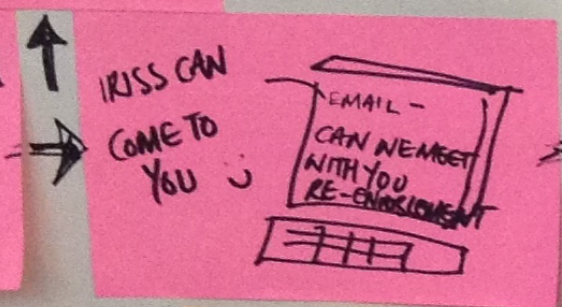 IRISS CAN
COME TO
YOU
EMAIL -
CAN WE MEET
WITH YOU
RE-